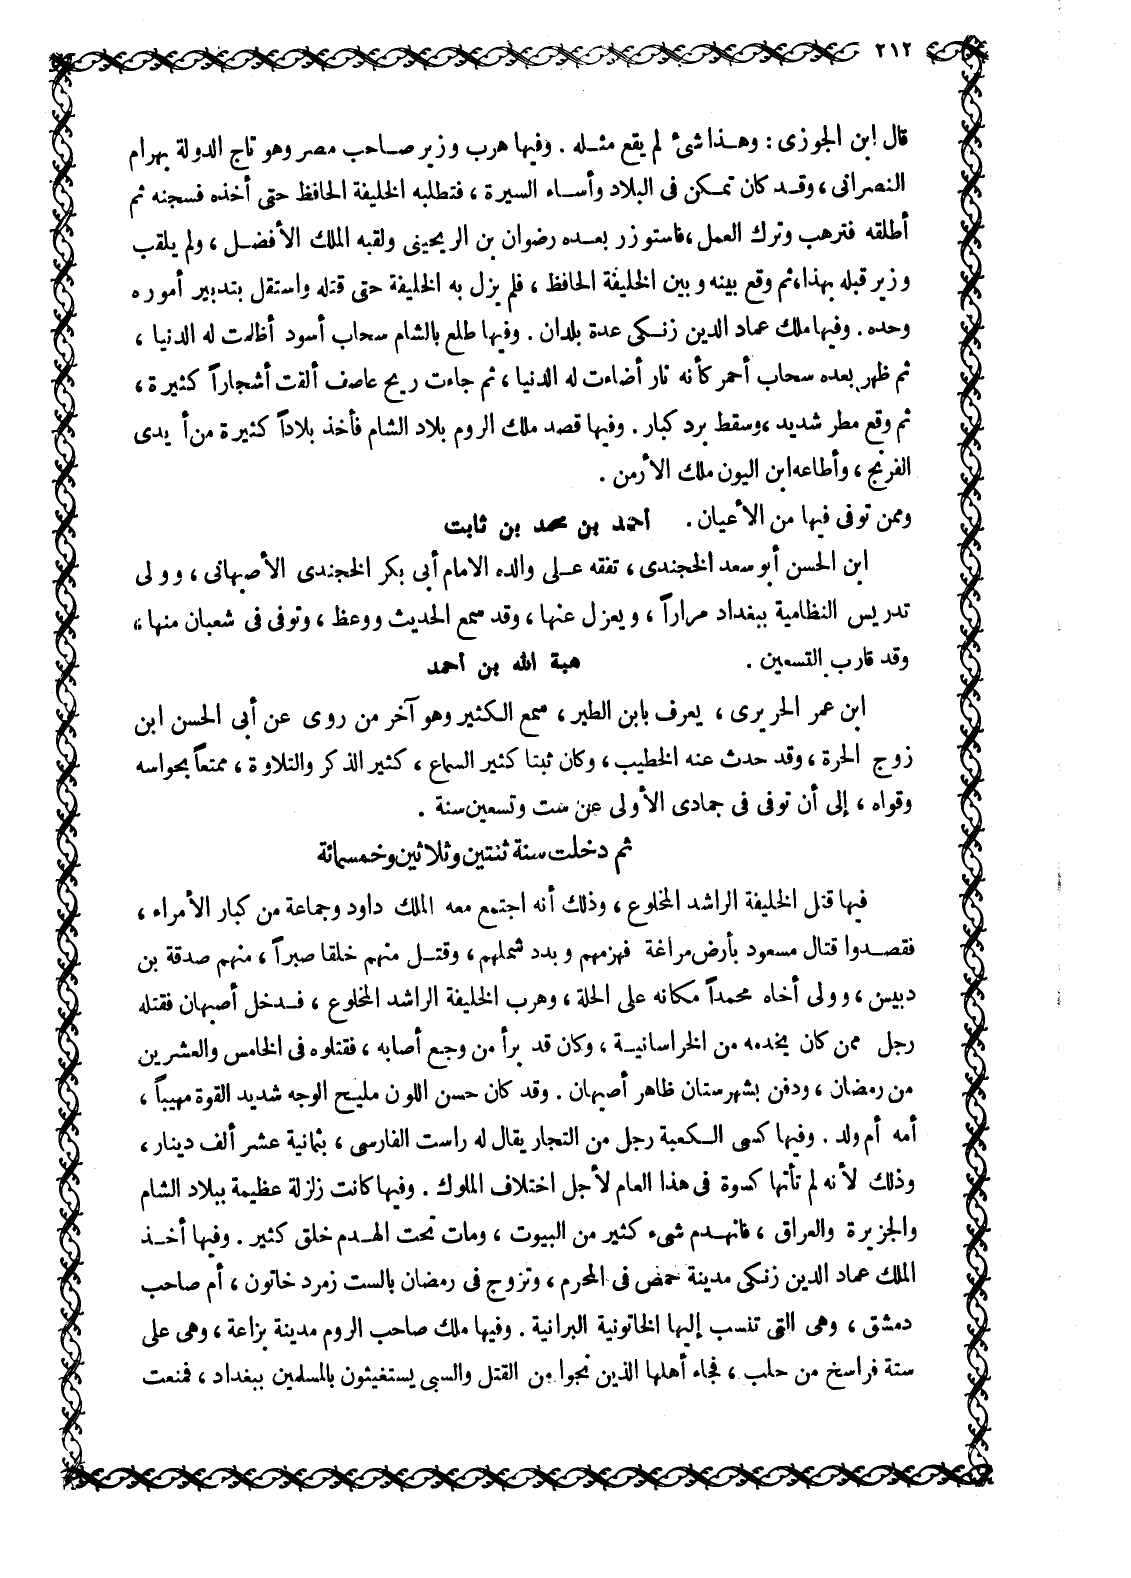 ٢١٢
قال ابن الجوزى : وهـذا شئ لم يقع مثـله . وفيها هرب وزير صـاحب مصر وهو تاج الدولة بهرام
النصرانى ، وقـد كان تمـكن فى البلاد وأسـاء السيرة ، فتطلبه الخليفة الحافظ حتى أخذه فسجنه ثم
أطلقه فترهب وترك العمل ، فاستوزر بعـده رضوان بن الريحينى ولقبه الملك الأفضـل ، ولم يلقب
وزير قبله بهذا ، ثم وقع بينه وبين الخليفة الحافظ ، فلم يزل به الخليفة حتى قتله واستقل بتدبير أموره
وحده . وفيها ملك عماد الدين زنـكى عدة بلدان . وفيها طلع بالشام سحاب أسود أظلمت له الدنيا ،
ثم ظهر بعده سحاب أحمر كأنه نار أضاءت له الدنيا ، ثم جاءت ريح عاصف ألقت أشجاراً كثيرة ،
ثم وقع مطر شديد ، وسقط برد كبار . وفيها قصد ملك الروم بلاد الشام فأخذ بلاداً كثيرة من أيدى
الفرنج ، وأطاعه ابن اليون ملك الأرمن .
وممن توفى فيها من الأعيان . أحمد بن محمد بن ثابت
ابن الحسن أبو سعد الخجندى ، تفقه عـلى والده الامام أبى بكر الخجندى الأصبهانى ، وولى
تدريس النظامية ببغداد مراراً ، ويعزل عنها ، وقد سمع الحديث ووعظ ، وتوفى فى شعبان منها ،
وقد قارب التسعين . هبة الله بن أحمد
ابن عمر الحريرى ، يعرف بابن الطير ، سمع الـكثير وهو آخر من روى عن أبى الحسن ابن
زوج الحرة ، وقد حدث عنه الخطيب ، وكان ثبتا كثير السماع ، كثير الذكر والتلاوة ، ممتعاً بحواسه
وقواه ، إلى أن توفى فى جمادى الأولى عن ست وتسعين سنة .
ثم دخلت سنة ثنتين وثلاثين وخمسمائة
فيها قتل الخليفة الراشد المخلوع ، وذلك أنه اجتمع معه الملك داود وجماعة من كبار الأمراء ،
فقصـدوا قتال مسعود بأرض مراغة فهزمهم وبدد شملهم ، وقتـل منهم خلقا صبراً ، منهم صدقة بن
دبيس ، وولى أخاه محمداً مكانه على الحلة ، وهرب الخليفة الراشد المخلوع ، فـدخل أصبهان فقتله
رجل ممن كان يخدمه من الخراسانيـة ، وكان قد برأ من وجع أصابه ، فقتلوه فى الخامس والعشرين
من رمضان ، ودفن بشهرستان ظاهر أصبهان . وقد كان حسن اللون مليح الوجه شديد القوة مهيباً ،
أمه أم ولد . وفيها كسى الـكعبة رجل من التجار يقال له راست الفارسى ، بثمانية عشر ألف دينار ،
وذلك لأنه لم تأتها كسوة فى هذا العام لأجل اختلاف الملوك . وفيها كانت زلزلة عظيمة ببلاد الشام
والجزيرة والعراق ، فانهـدم شىء كثير من البيوت ، ومات تحت الهـدم خلق كثير . وفيها أخـذ
الملك عماد الدين زنـكى مدينة حمص فى المحرم ، وتزوج فى رمضان بالست زمرد خاتون ، أم صاحب
دمشق ، وهى التى تنسب إليها الخاتونية البرانية . وفيها ملك صاحب الروم مدينة بزاعة ، وهى على
ستة فراسخ من حلب ، فجاء أهلها الذين نجوا من القتل والسبى يستغيثون بالمسلمين ببغداد ، فمنعت